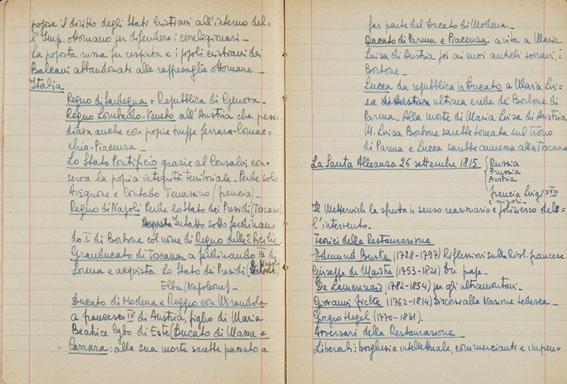 pose il diritto degli Stati Cristiani all'interno del-
l'Imp. ottomano per difendere i correligionari.
La proposta russa fu respinta e i popoli cristiani dei
Balcani abbandonati alle rappresaglie ottomane.
Italia
Regno di Sardegna + Repubblica di Genova.
Regno Lombardo-Veneto all'Austria che presi-
diava anche con proprie truppe Ferrara-Comac-
chio-Piacenza.
Lo Stato Pontificio grazie al Consalvi con-
serva la propria integrità territoriale. Perde solo
Avignone e Contado Venassino (Francia)
Regno di Napoli Perde lo Stato dei Presidi (Toscana)
Intatto sotto Ferdinan-
do I di Borbone col nome di Regno delle 2 Sicilie
Granducato di Toscana a Ferdinando III di
Lorena e acquista lo Stato dei Presidi
Elba (Napoleone)
Ducato di Modena e Reggio con Mirandola
a Francesco IV di Austria, figlio di Maria
Beatrice Cybo di Este (Ducato di Massa e
Carrara: alla sua morte sarebbe passato a
far parte del Ducato di Modena.
Ducato di Parma e Piacenza a vita a Maria
Luisa di Austria poi ai suoi antichi sovrani, i
Borbone.
Lucca da repubblica in Ducato a Maria Lui-
sa di Austria ultima erede dei Borbone di
Parma. Alla morte di Maria Luisa di Austria
M. Luisa Borbone sarebbe tornata sul trono
di Parma e Lucca sarebbe annessa alla Toscana
La Santa Alleanza 26 settembre 1815
Russia
Prussia
Austria
Francia Luigi XVIII
Il Metternich la sfrutta in senso reazionario e poliziesco del-
l'intervento.
Teorici della Restaurazione
Edmund Burke (1728-1797) Riflessioni sulla Rivol. francese.
Giuseppe de Maistre (1753-1821) Du pape.
De Lamennais (1782-1854) fu gli ultramontani.
Giovanni Fichte (1762-1814) Discorsi alla Nazione tedesca.
Giorgio Hegel (1770-1831).
Avversari della Restaurazione
Liberali: borghesia intellettuale, commercianti e impren-